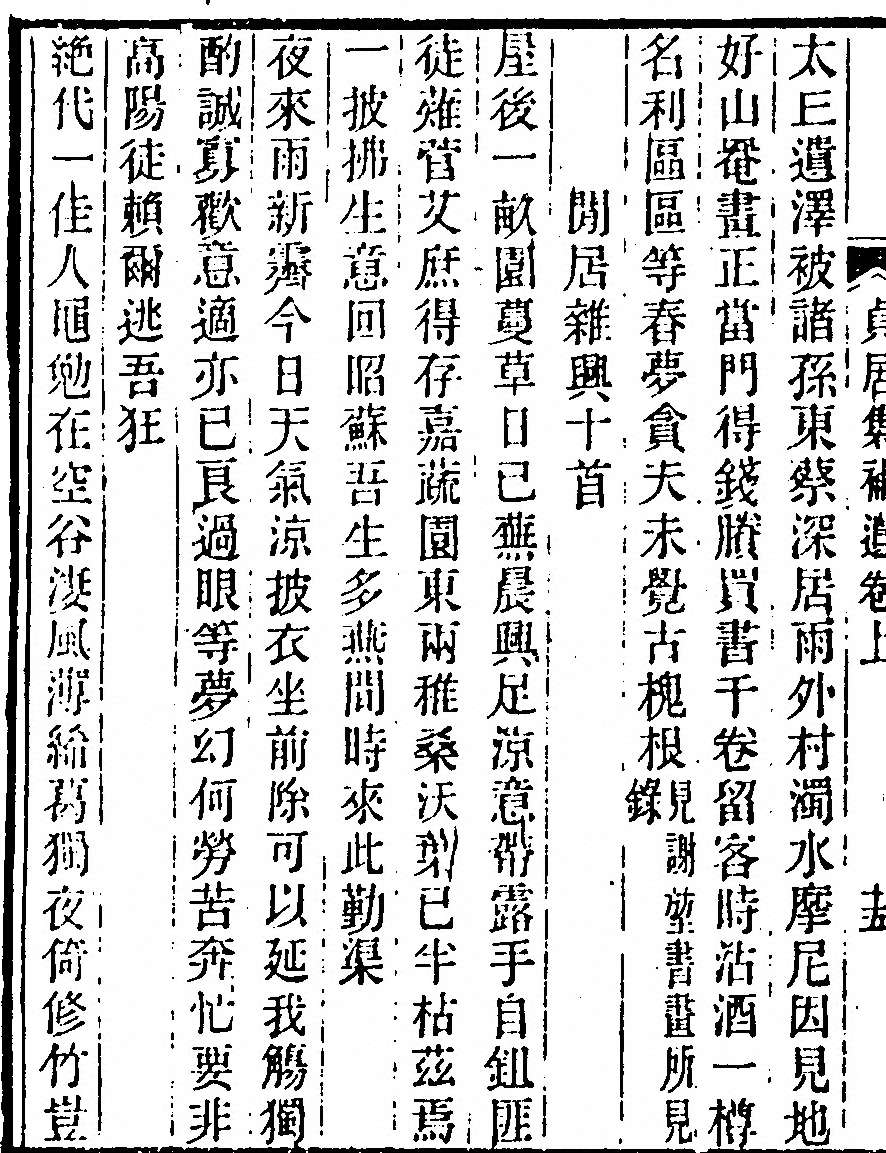 貞居集補遺卷上 十五
太丘遺澤被諸孫東蔡深居雨外村濁水摩尼因見地
好山罨畫正當門得錢賸買書千卷留客時沽酒一樽
名利區區等春夢貪夫未覺古槐根見謝堃書畫所見錄
閒居雜興十首
屋後一畝園蔓草日已蕪晨興足涼意帶露手自鉏匪
徒薙菅艾庶得存嘉蔬園東兩稚桑沃葉已半枯茲焉
一披拂生意回昭蘇吾生多燕閒時來此勤渠
夜來雨新霽今日天氣涼披衣坐前除可以延我觴獨
酌誠寡歡意適亦已良過眼等夢幻何勞苦奔忙要非
高陽徒賴爾逃吾狂
絶代一佳人黽勉在空谷淒風薄絺葛獨夜倚修竹豈